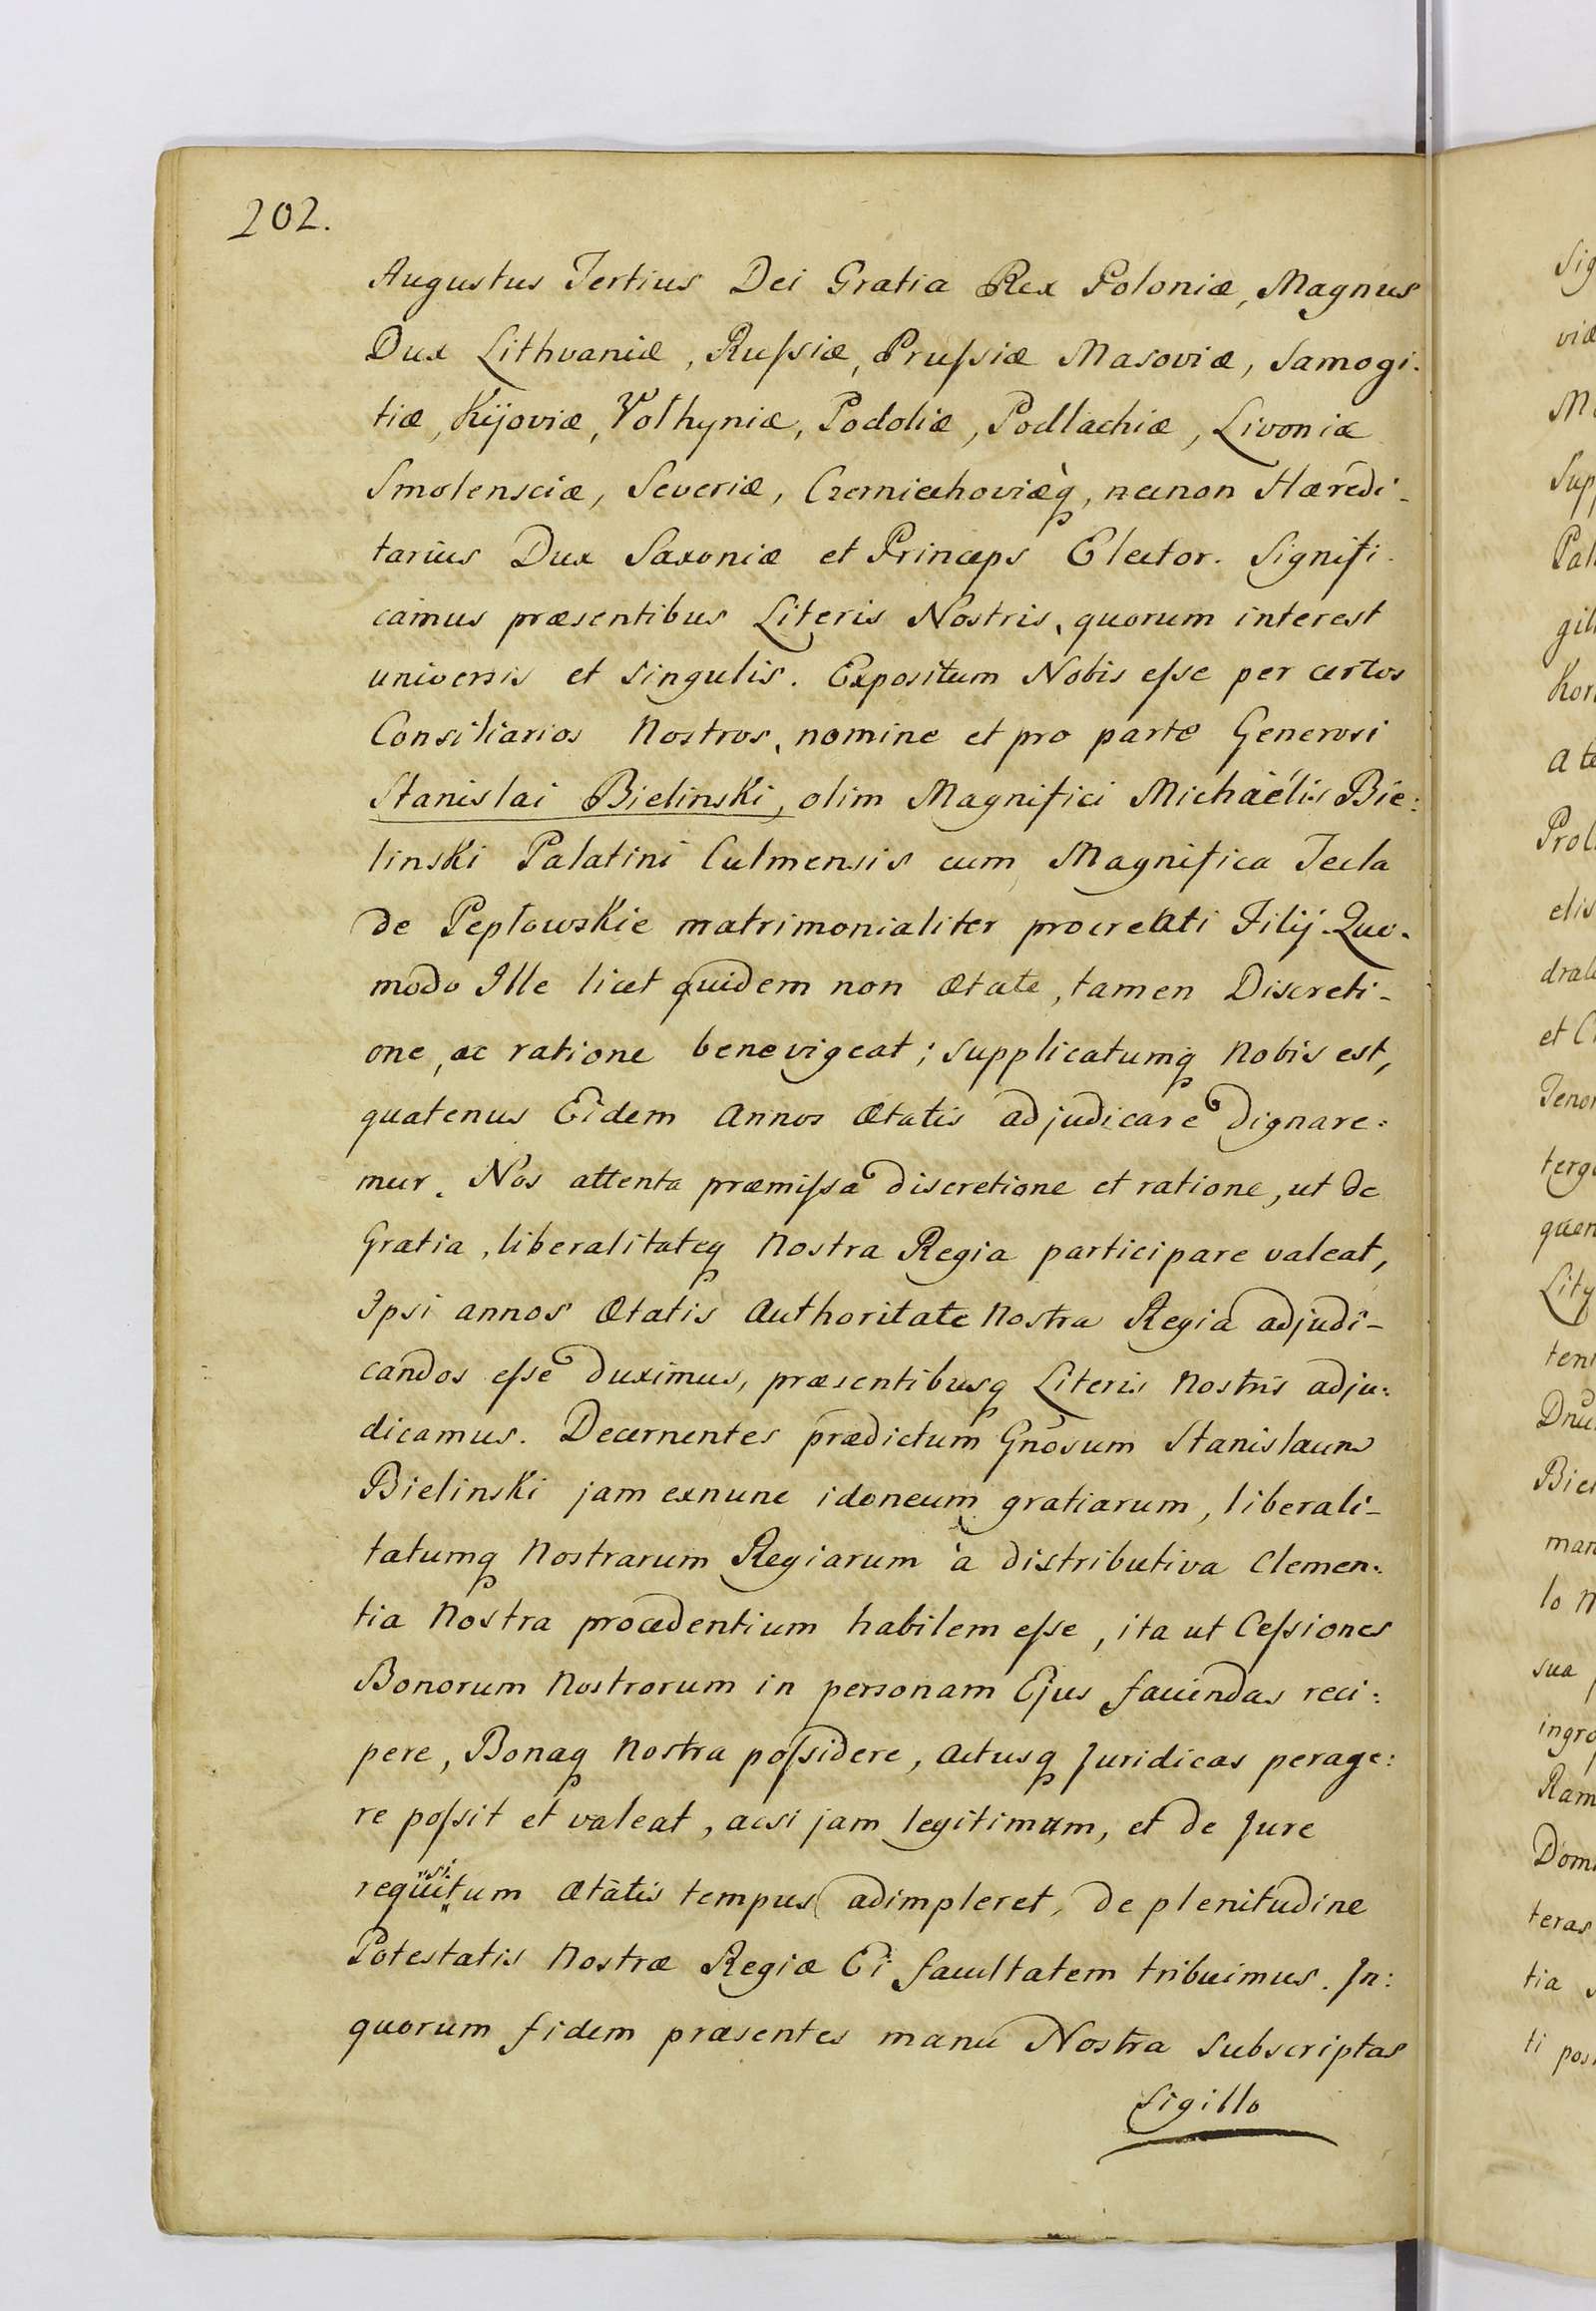 202.
Augustus Tertius Dei Gratia Rex Poloniæ, Magnus
Dux Lithvaniæ, Rußsiæ, Prußsiæ Masoviæ, Samogi.
tiæ, Kijoviæ, Volhyniæ, Podoliæ, Podlachiæ, Livoniæ
Smolensciæ, Severiæ, Czerniechoviæq, necnon Hæredi-
tarius Dux Saxoniæ et Princeps Elector. Signifi-
camus præsentibus Literis Nostris, quorum interest
universis et singulis. Expositum Nobis eſse per certos
Consiliarios Nostros, nomine et pro parte Generosi
Stanislai Bielinski, olim Magnifici Michaëlis Bie:
linski Palatini Culmensis cum Magnifica Tecla
de Peplowskie matrimonialiter procreati Filij. Quo-
modo Ille licet quidem non ætate, tamen Discreti-
one, ac ratione bene vigeat; supplicatumq Nobis est,
quatenus Eidem Annos Ætatis adjudicare dignare:
mur. Nos attenta præmiſsa discretione et ratione, ut de
Gratia, liberalitateq Nostra Regia participare valeat,
Ipsi annos Ætatis Authoritate Nostra Regia adjudi-
candos eſse duximus, præsentibusq Literis Nostris adju:
dicamus. Decernentes prædictum Gnosum Stanislaum
Bielinski jam exnunc idoneum gratiarum, liberali-
tatumq Nostrarum Regiarum à distributiva Clemen:
tia Nostra procedentium habilem eſse, ita ut Ceſsiones
Bonorum Nostrorum in personam Ejus faciendas reci:
pere, Bonaq Nostra poſsidere, Actusq Juridicas perage:
re poſsit et valeat, acsi jam legitimum, et de Jure
requisitum Ætatis tempus adimpleret, de plenitudine
Potestatis Nostræ Regiæ Ei facultatem tribuimus. In:
quorum fidem præsentes manu Nostra Subscriptas
Sigillo
Sig
viæ
Sup
Pal
gil
Kor
a te
Prol
elis
dral
et C
Tenor
terg
quen
Lity
ten
Bie
man
lo N
sua
ingr
Ram
Dom
teras
tia
ti pos